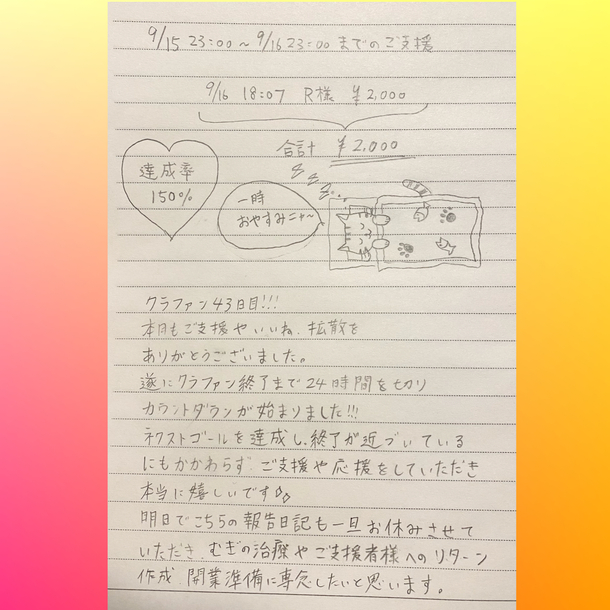 9/15 23:00～9/16 23:00 までのご支援
9/16 18:07 R様 ¥2,000
合計 ¥2,000
達成率
150%
一時
おやすみニャ〜
クラファン43日目!!!
本日もご支援やいいね、拡散を
ありがとうございました。
遂にクラファン終了まで24時間を切り
カウントダウンが始まりました!!!
ネクストゴールを達成し、終了が近づいている
にもかかわらず、ご支援や応援をしていただき
本当に嬉しいです
明日でこちらの報告日記も一旦お休みさせて
いただき、むぎの治療やご支援者様へのリターン
作成、開業準備に専念したいと思います。